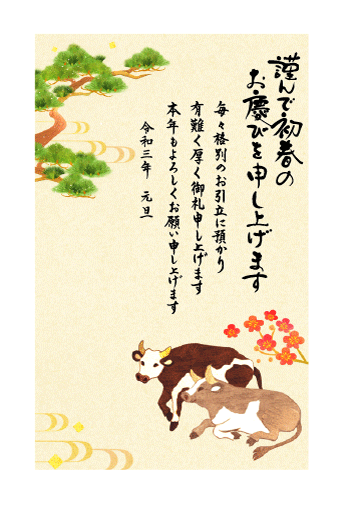 謹んで初春の
お慶びを申し上げます
毎々格別のお引立に預かり
有難く厚く御札申し上げます
本年もよろしくお願い申し上げます
令和三年　元旦